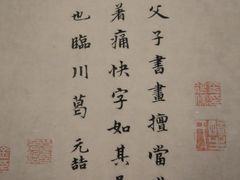 父子書畫擅當
著痛快字如其
也臨川葛元喆